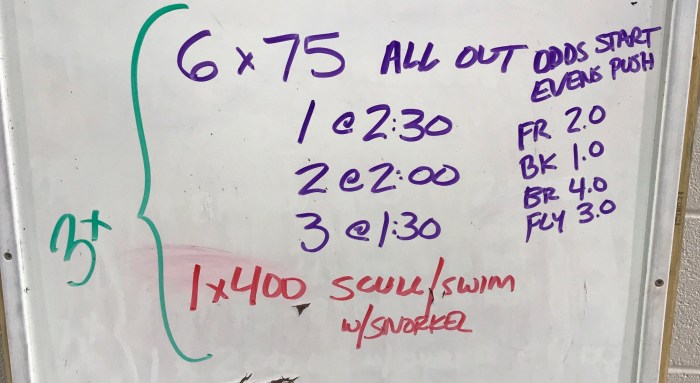 6 x 75 ALL OUT ODDS START
EVENS PUSH
1 @ 2:30
2 @ 2:00
3 @ 1:30
FR 2.0
BK 1.0
BR 4.0
FLY 3.0
3+
1x400 SCULL/SWIM
W/SNORKEL